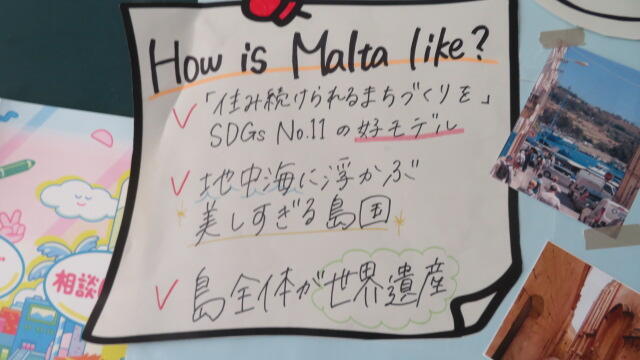 How is Malta like?
✓「住み続けられるまちづくりを」
SDGs No.11の好モデル
✓ 地中海に浮かぶ
美しすぎる島国
✓ 島全体が世界遺産
相談